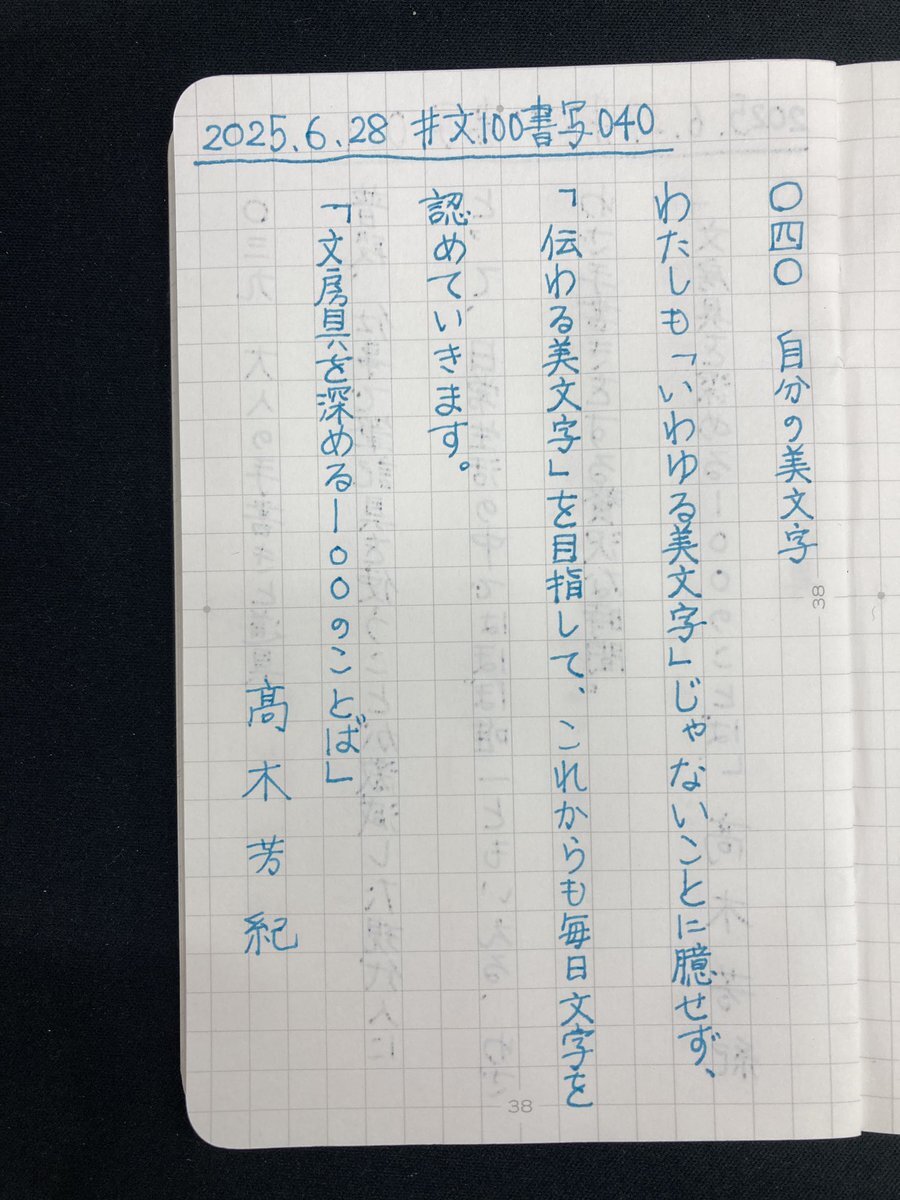 2025.6.28 #文100書写040
〇四〇 自分の美文字
わたしも「いわゆる美文字」じゃないことに臆せず、
「伝わる美文字」を目指して、これからも毎日文字を
認めていきます。
「文房具を深める一〇〇のことば」
髙木芳紀
38
38